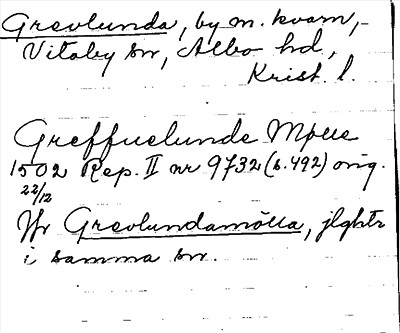 Grevlunda, by m. kvarn,
Vitaby sn, Albo hd,
Krist. l.
Greffuelunde Mølle
1502 Rep. II nr 9732 (s. 492) orig.
22/12
Jfr Grevlundamölla, jlghtr
i samma sn.